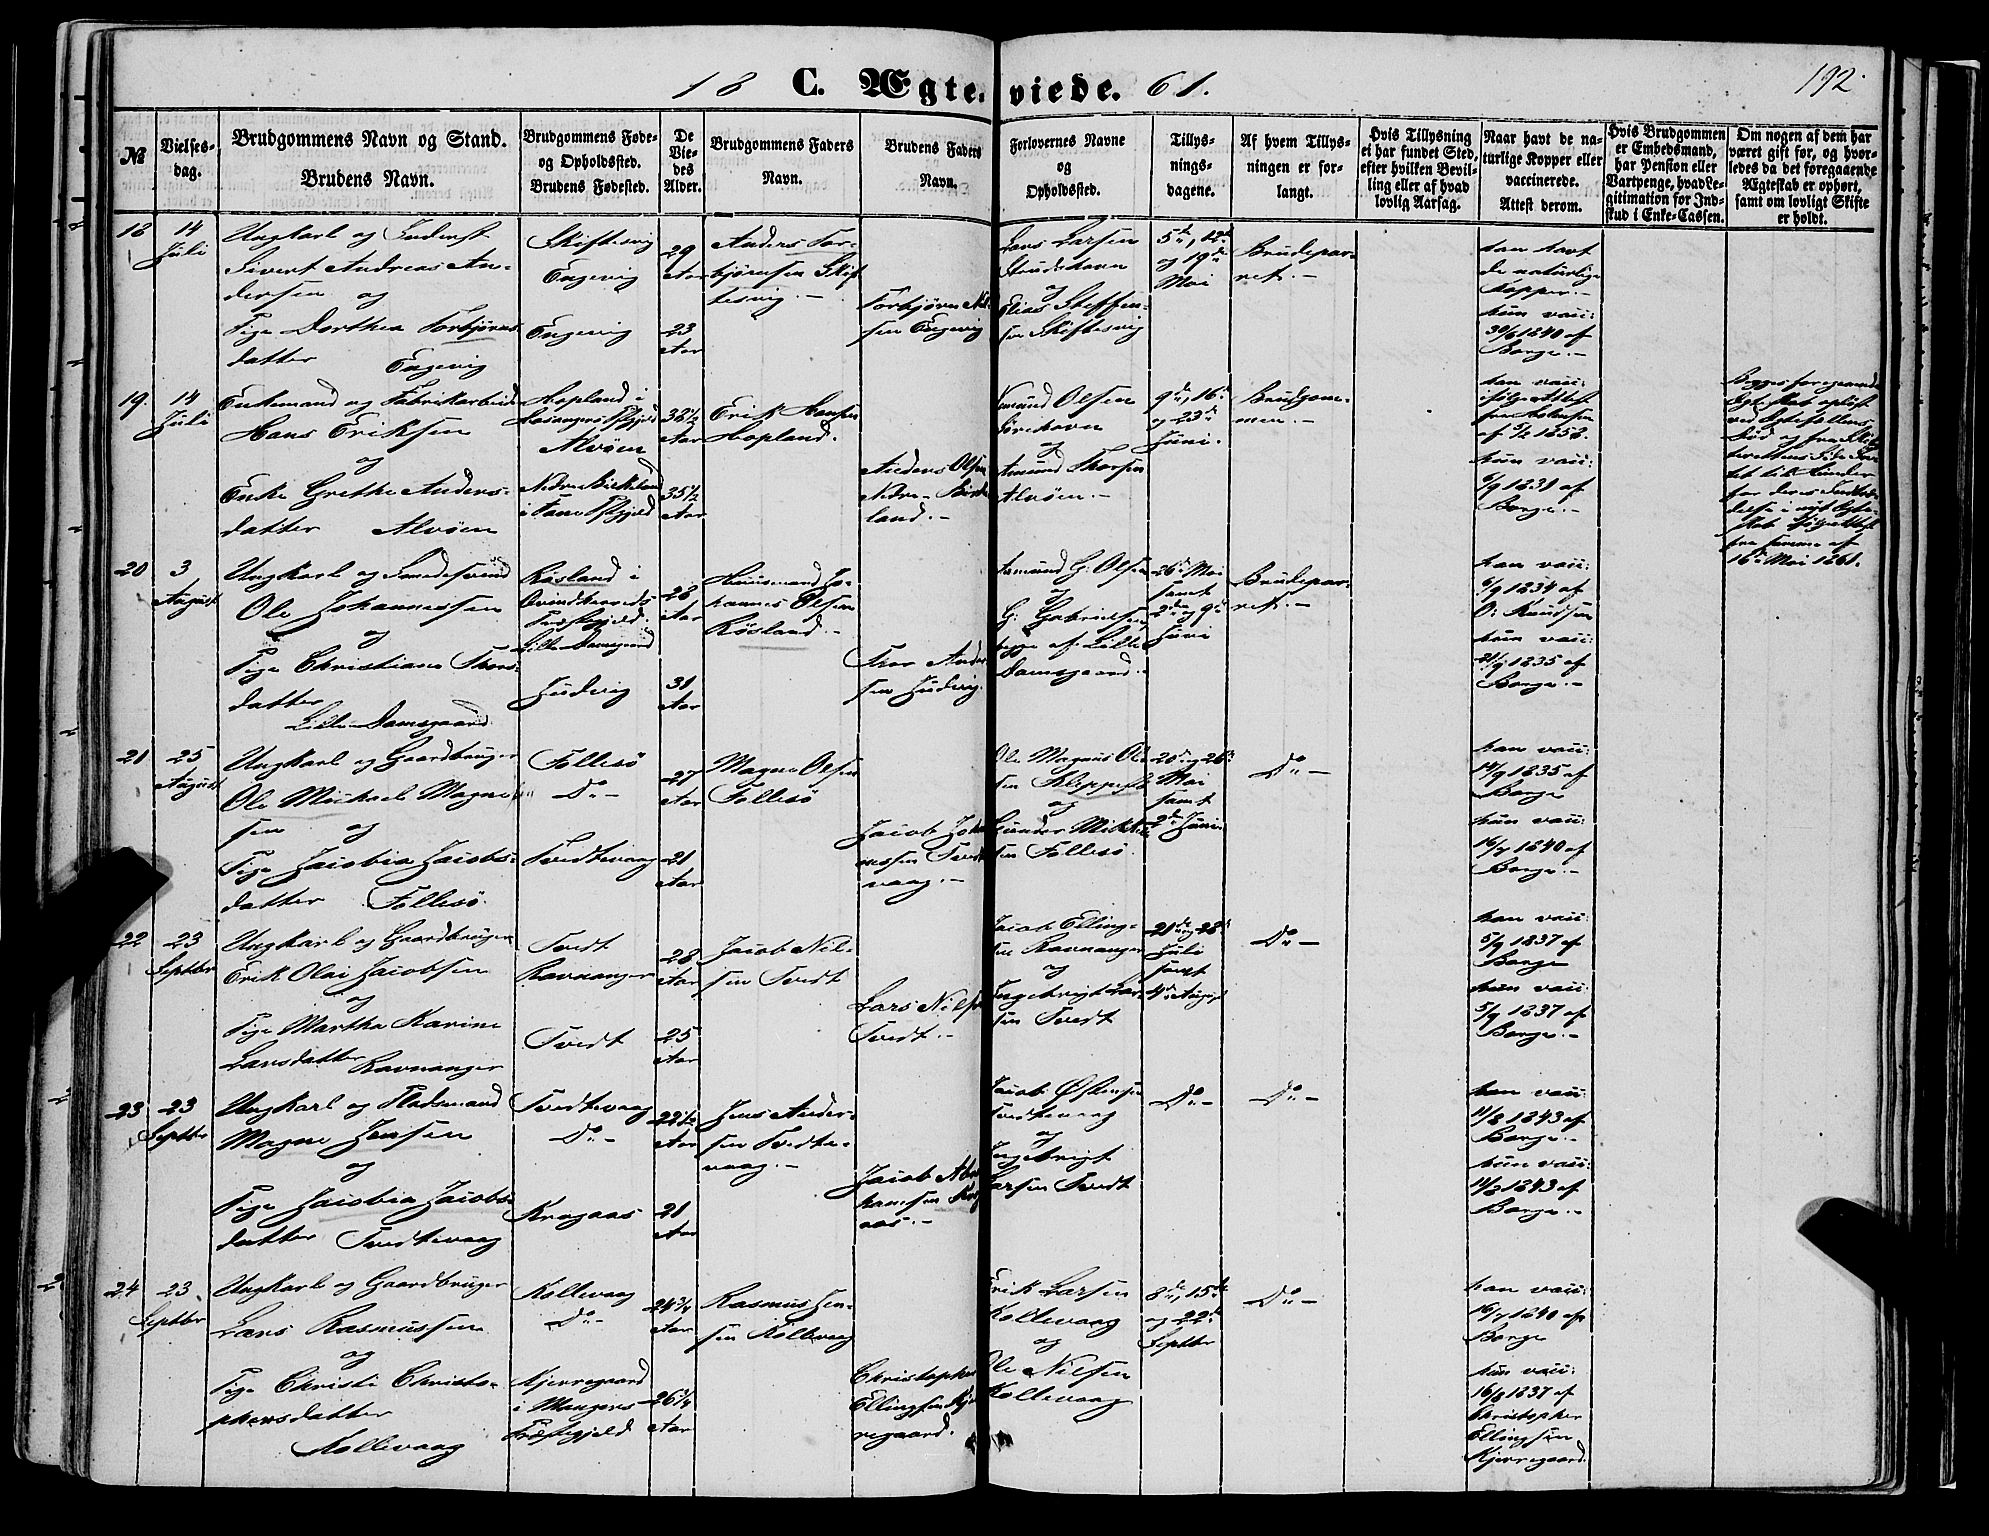 18 C. Ægteviede. 61.
192
№
Vielses-
dag.
Brudgommens Navn og Stand.
Brudens Navn.
Brudgommens Føde-
og Opholdssted.
Brudens Fødested.
De
Vie-
des
Alder.
Brudgommens Faders
Navn.
Brudens Faders
Navn.
Forlovernes Navne
og
Opholdssted.
Tillys-
nings-
dagene.
Af hvem Tillys-
ningen er for-
langt.
Hvis Tillysning
ei har fundet Sted,
efter hvilken Bevil-
ling eller af hvad
lovlig Aarsag.
Naar havt de na-
turlige Kopper eller
vaccinerede.
Attest derom.
Hvis Brudgommen
er Embedsmand,
har Pension eller
Vartpenge, hvad Le-
gitimation for Ind-
skud i Enke-Cassen.
Om nogen af dem har
været gift før, og hvor-
ledes da det foregaaende
Ægteskab er ophørt,
samt om lovligt Skifte
er holdt.
18
14
Juli
Ungkarl og
Sivert Andreas An-
dersen og
Pige Dorthea Torbjørns-
datter Engevig
Skiftesvig
Engevig
Engevig
29
Aar
23
Aar
Anders Tor-
bjørnsen Skif-
tesvig.-
Torbjørn Niel-
sen Engevig
Lars Larsen
og
Elias Steffen-
sen Skiftesvig
5te, 12te
og 19de
Mai
Brudepar-
ret.-
han havt
de naturlige
Kopper.-
hun vacc:
1840 af
Borge.-
19.
14
Juli
Enkemand og Fabrikarbeider
Hans Eriksen
og
Enke Grethe Anders-
datter Alvøen
Hopland i
Alvøen
Nedre Birkeland
i Fane Pgjeld
38½
Aar
35½
Aar
Erik Hansen
Hopland.
Anders Olsen
Nedre Birke-
land.-
Amund Olsen
og
Amund Thorsen
Alvøen.-
9de, 16de
og 23de
Juni.
Brudgom-
men.-
han vacc:
ifølge Attest
fra
af 1858.
hun vacc:
6/9 1831 af
Borge.-
Begges foregaaende
Egteskab opløst
ved Egtefællens
Død og fra Skif-
terettens Side In-
tet til Hinder
for deres Indtræ-
delse i nyt Egte-
skab ifølge Attest
fra samme af
16de Mai 1861.
20
3
August
Ungkarl og Smedesvend
Ole Johannessen
og
Pige Christiane Thors-
datter
Lille Damsgaard
Røsland i
Qvindherreds
Præstegjeld.
Lille Damsgaard
Judvig
28
Aar
31
Aar
Huusmand Jo-
hannes Olsen
Røsland.-
Thor Ander-
sen Judvig.
Amund G. Olsen
og
G. Gabrielsen
begge af Lille
Damsgaard.-
26de Mai
samt
2den og 9de
Juni
Brudepar-
ret.-
han vacc:
6/9 1834 af
O: Knudsen
hun vacc:
21/9 1835 af
Borge.-
21
25
August
Ungkarl og Gaardbruger
Ole Michael Magne-
sen og
Pige Jacobia Jacobs-
datter Follesø.
Follesø
Do -
Tvedtevaag
27
Aar
21
Aar
Magne Olsen
Follesø
Jacob Joha-
nessen Tvedte-
vaag.-
Ole Magnus Ol-
sen Kleppestø
og
Gunder Mikkel-
sen Follesø.
20de og 26de
Mai
samt
2den Juni
Do -
han vacc:
14/9 1835 af
Borge
hun vacc:
16/7 1840 af
Borge.-
22
23
Septbr
Ungkarl og Gaardbruger
Erik Olai Jacobsen
og
Pige Martha Karine
Larsdatter Ravnanger
Tvedt
Ravnanger
Tvedt
28
Aar
25
Aar
Jacob Niel-
sen Tvedt
Lars Nielsen
Tvedt.-
Jacob Elling-
sen Ravnanger
og
Ingebrigt Lar-
sen Tvedt
21de og 28de
Juli
samt
4de August
Do -
han vacc:
5/9 1837 af
Borge
hun vacc:
5/9 1837 af
Borge.-
23
23
Septbr
Ungkarl og Pladsmand
Magne Jensen
og
Pige Jacobia Jacobs-
datter Tvedtevaag
Tvedtevaag
Do -
Krogaas
22½
Aar
21
Aar
Jens Ander-
sen Tvedte-
vaag.-
Jacob Abra-
hamsen Krog-
aas.-
Jacob Østensen
Tvedtevaag
og
Ingebrigt
Larsen Tvedt
Do -
Do -
han vacc:
14/8 1843 af
Borge.-
hun vacc:
14/8 1843 af
Borge.-
24
23
Septbr
Ungkarl og Gaardbruger
Lars Rasmussen
og
Pige Christi Christo-
phersdatter
Kollevaag
Kollevaag
Do -
Kjerregaard
i Mangers
Præstegjeld
24¾
Aar
26¼
Aar
Rasmus Jen-
sen Kollevaag
Christopher
Ellingsen Kjer-
regaard.
Erik Larsen
Kollevaag
og
Ole Nielsen
Kollevaag
8de, 15de
og 22de
Septbr
Do -
han vacc:
16/7 1840 af
Borge
hun vacc:
16/8 1837 af
Christopher
Ellingsen
Kjerregaard.